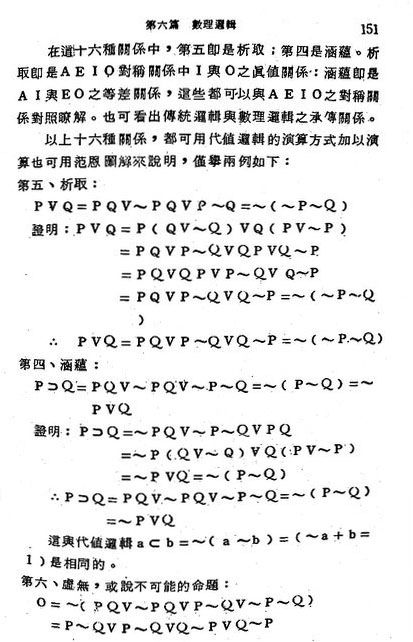 第六篇 數理邏輯 151
在這十六種關係中，第五卽是析取；第四是涵蘊。析
取卽是AEIO對稱關係中I與O之眞値關係：涵蘊卽是
AI與EO之等差關係，這些都可以與AEIO之對稱關
係對照瞭解。也可看出傳統邏輯與數理邏輯之承傳關係。
以上十六種關係，都可用代値邏輯的演算方式加以演
算也可用范恩圖解來說明，僅舉兩例如下：
第五、析取：
PVQ=PQV～PQVP～Q=～(～P～Q)
證明：PVQ=P(QV～Q)VQ(PV～P)
=PQVP～QVQPVQ～P
=PQVQPVP～QVQ～P
=PQVP～QVQ～P=～(～P～Q
)
∴ PVQ=PQVP～QVQ～P=～(～P～Q)
第四、涵蘊：
P⊃Q=PQV～PQV～P～Q=～(P～Q)=～
PVQ
證明：P⊃Q=～PQV～P～QVPQ
=～P(QV～Q)VQ(PV～P)
=～PVQ=～(P～Q)
∴P⊃Q=PQV～PQV～P～Q=～(P～Q)
=～PVQ
這與代値邏輯a⊂b=～(a～b)=(～a+b=
1)是相同的。
第六、虛無，或說不可能的命題：
O=～(PQV～PQVP～QV～P～Q)
=P～QVP～QVQ～PVQ～P